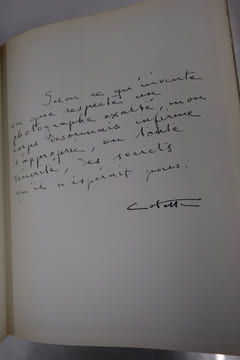 Selon ce qu'invente
ou que respecte un
photographe exalté, mon
corps désormais infirme
s'approprie, en toute
sécurité, des secrets
qu'il n'espérait pas.
Colette